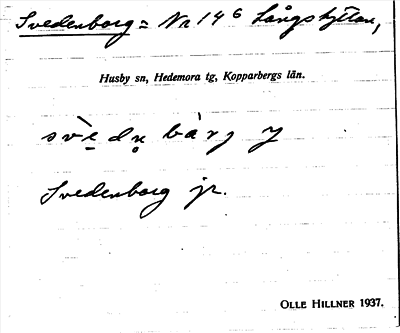 Svedenborg = Nr 14⁶ Långshyttan,
Husby sn, Hedemora tg, Kopparbergs län.
Svedenborg jr.
OLLE HILLNER 1937.